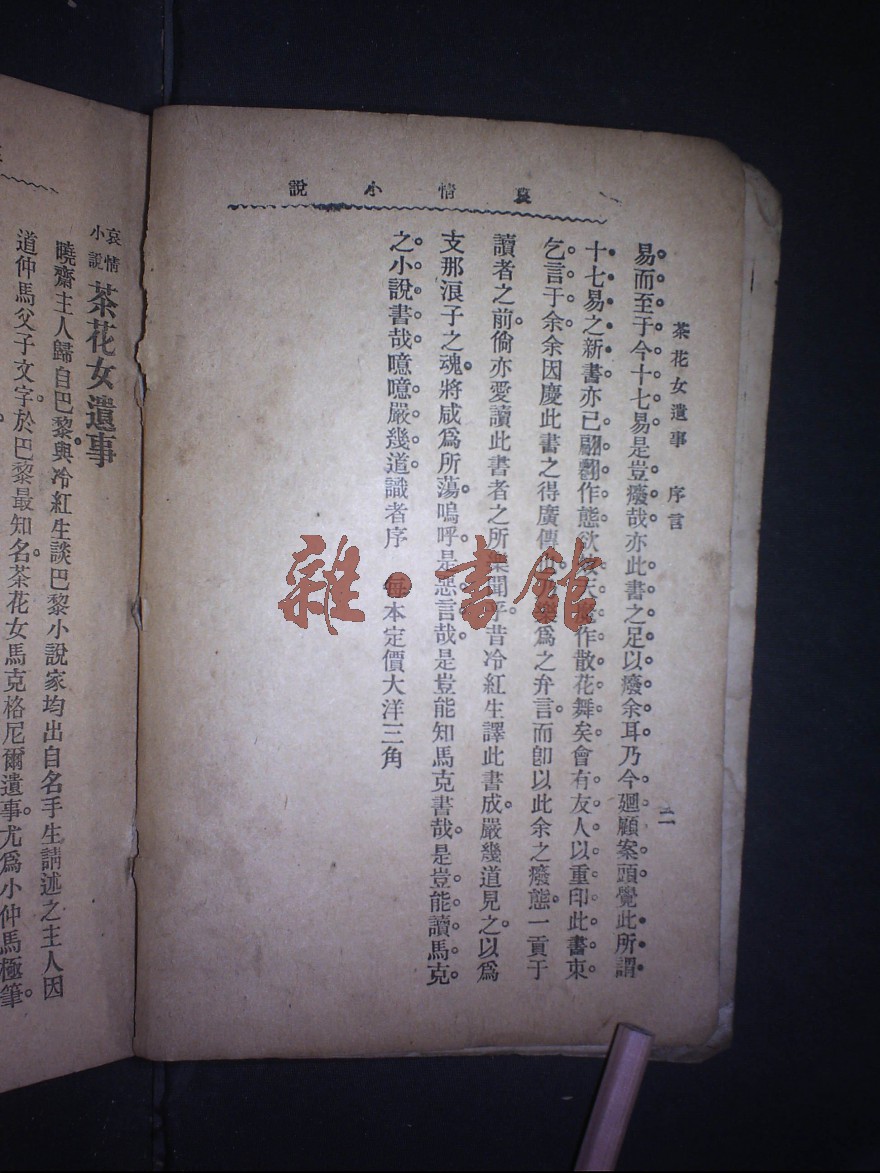 哀情小說
茶花女遺事 序言
二
易而至于今十七易是豈癈哉亦此書之足以癈余耳乃今廻顧案頭覺此所謂
十七易之新書亦已翩翻作態欲天作散花舞矣會有友人以重印此書束
乞言于余余因慶此書之得廣傳也為之弁言而卽以此余之癈態一貢于
讀者之前倘亦愛讀此書者之所聞乎昔冷紅生譯此書成嚴幾道見之以爲
支那浪子之魂將咸爲所蕩嗚呼是惡言哉是豈能知馬克書哉是豈能讀馬克
之小說書哉噫噫嚴幾道識者序 每本定價大洋三角
雜·書館
哀情小說 茶花女遺事
曉齋主人歸自巴黎與冷紅生談巴黎小說家均出自名手生請述之主人因
道仲馬父子文字於巴黎最知名茶花女馬克格尼爾遺事尤爲小仲馬極筆